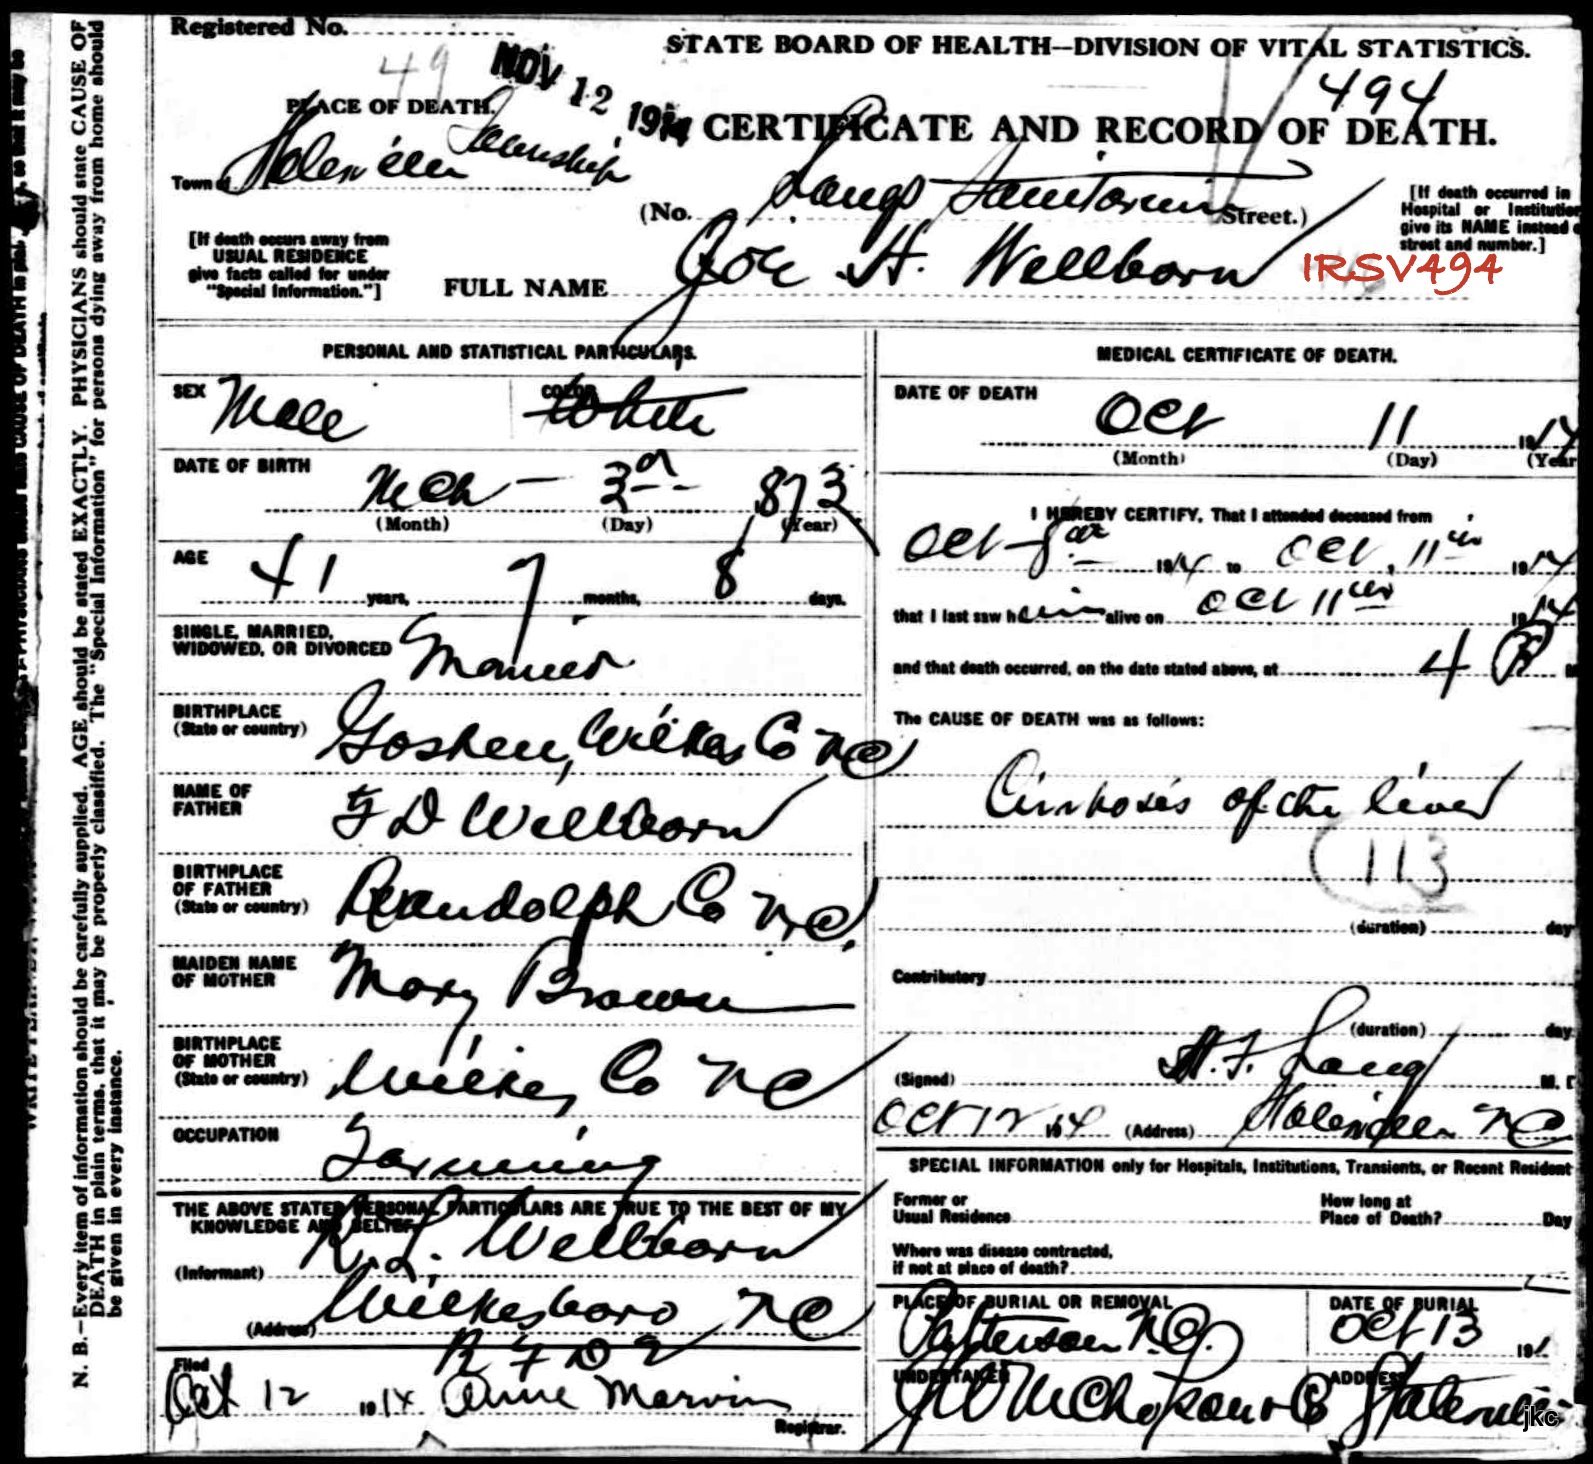 Registered No.
49
NOV 12 1914
STATE BOARD OF HEALTH—DIVISION OF VITAL STATISTICS.
494
PLACE OF DEATH.
CERTIFICATE AND RECORD OF DEATH.
Township
Town of
(No. Longs Sanitorium Street.)
[If death occurred in
Hospital or Institution
give its NAME instead o
street and number.]
[If death occurs away from
USUAL RESIDENCE
give facts called for under
"Special Information."]
FULL NAME Joe H. Wellborn
IRSV494
PERSONAL AND STATISTICAL PARTICULARS.
SEX Male COLOR White
DATE OF BIRTH Mch - 3rd 1873
(Month) (Day) (Year)
AGE 41 years, 7 months, 8 days.
SINGLE, MARRIED,
WIDOWED, OR DIVORCED Married
BIRTHPLACE
(State or country) Goshen, Wilkes Co NC
NAME OF
FATHER F D Wellborn
BIRTHPLACE
OF FATHER
(State or country) Randolph Co N.C.
MAIDEN NAME
OF MOTHER Mary Brown
BIRTHPLACE
OF MOTHER
(State or country) Wilkes Co NC
OCCUPATION Farming
THE ABOVE STATED PERSONAL PARTICULARS ARE TRUE TO THE BEST OF MY
KNOWLEDGE AND BELIEF
(Informant) R. L. Wellborn
(Address) Wilkesboro NC
R F D 2
Filed
Oct 12 1914 Anne Marvin
Registrar.
MEDICAL CERTIFICATE OF DEATH.
DATE OF DEATH
Oct 11 1914
(Month) (Day) (Year
I HEREBY CERTIFY, That I attended deceased from
Oct 8th 1914 to Oct, 11th 1914
that I last saw him alive on Oct 11th 1914
and that death occurred, on the date stated above, at 4 P M
The CAUSE OF DEATH was as follows:
Cirrhosis of the liver
113
(duration) day
Contributory
(duration) day
(Signed) H. F. Long M. D
Oct 12 1914 (Address) NC
SPECIAL INFORMATION only for Hospitals, Institutions, Transients, or Recent Resident
Former or
Usual Residence
How long at
Place of Death? Day
Where was disease contracted,
if not at place of death?
PLACE OF BURIAL OR REMOVAL
Patterson N.C.
DATE OF BURIAL
Oct 13 191
UNDERTAKER
ADDRESS
jkc
N. B.—Every item of information should be carefully supplied. AGE should be stated EXACTLY. PHYSICIANS should state CAUSE OF
DEATH in plain terms, that it may be properly classified. The "Special Information" for persons dying away from home should
be given in every instance.